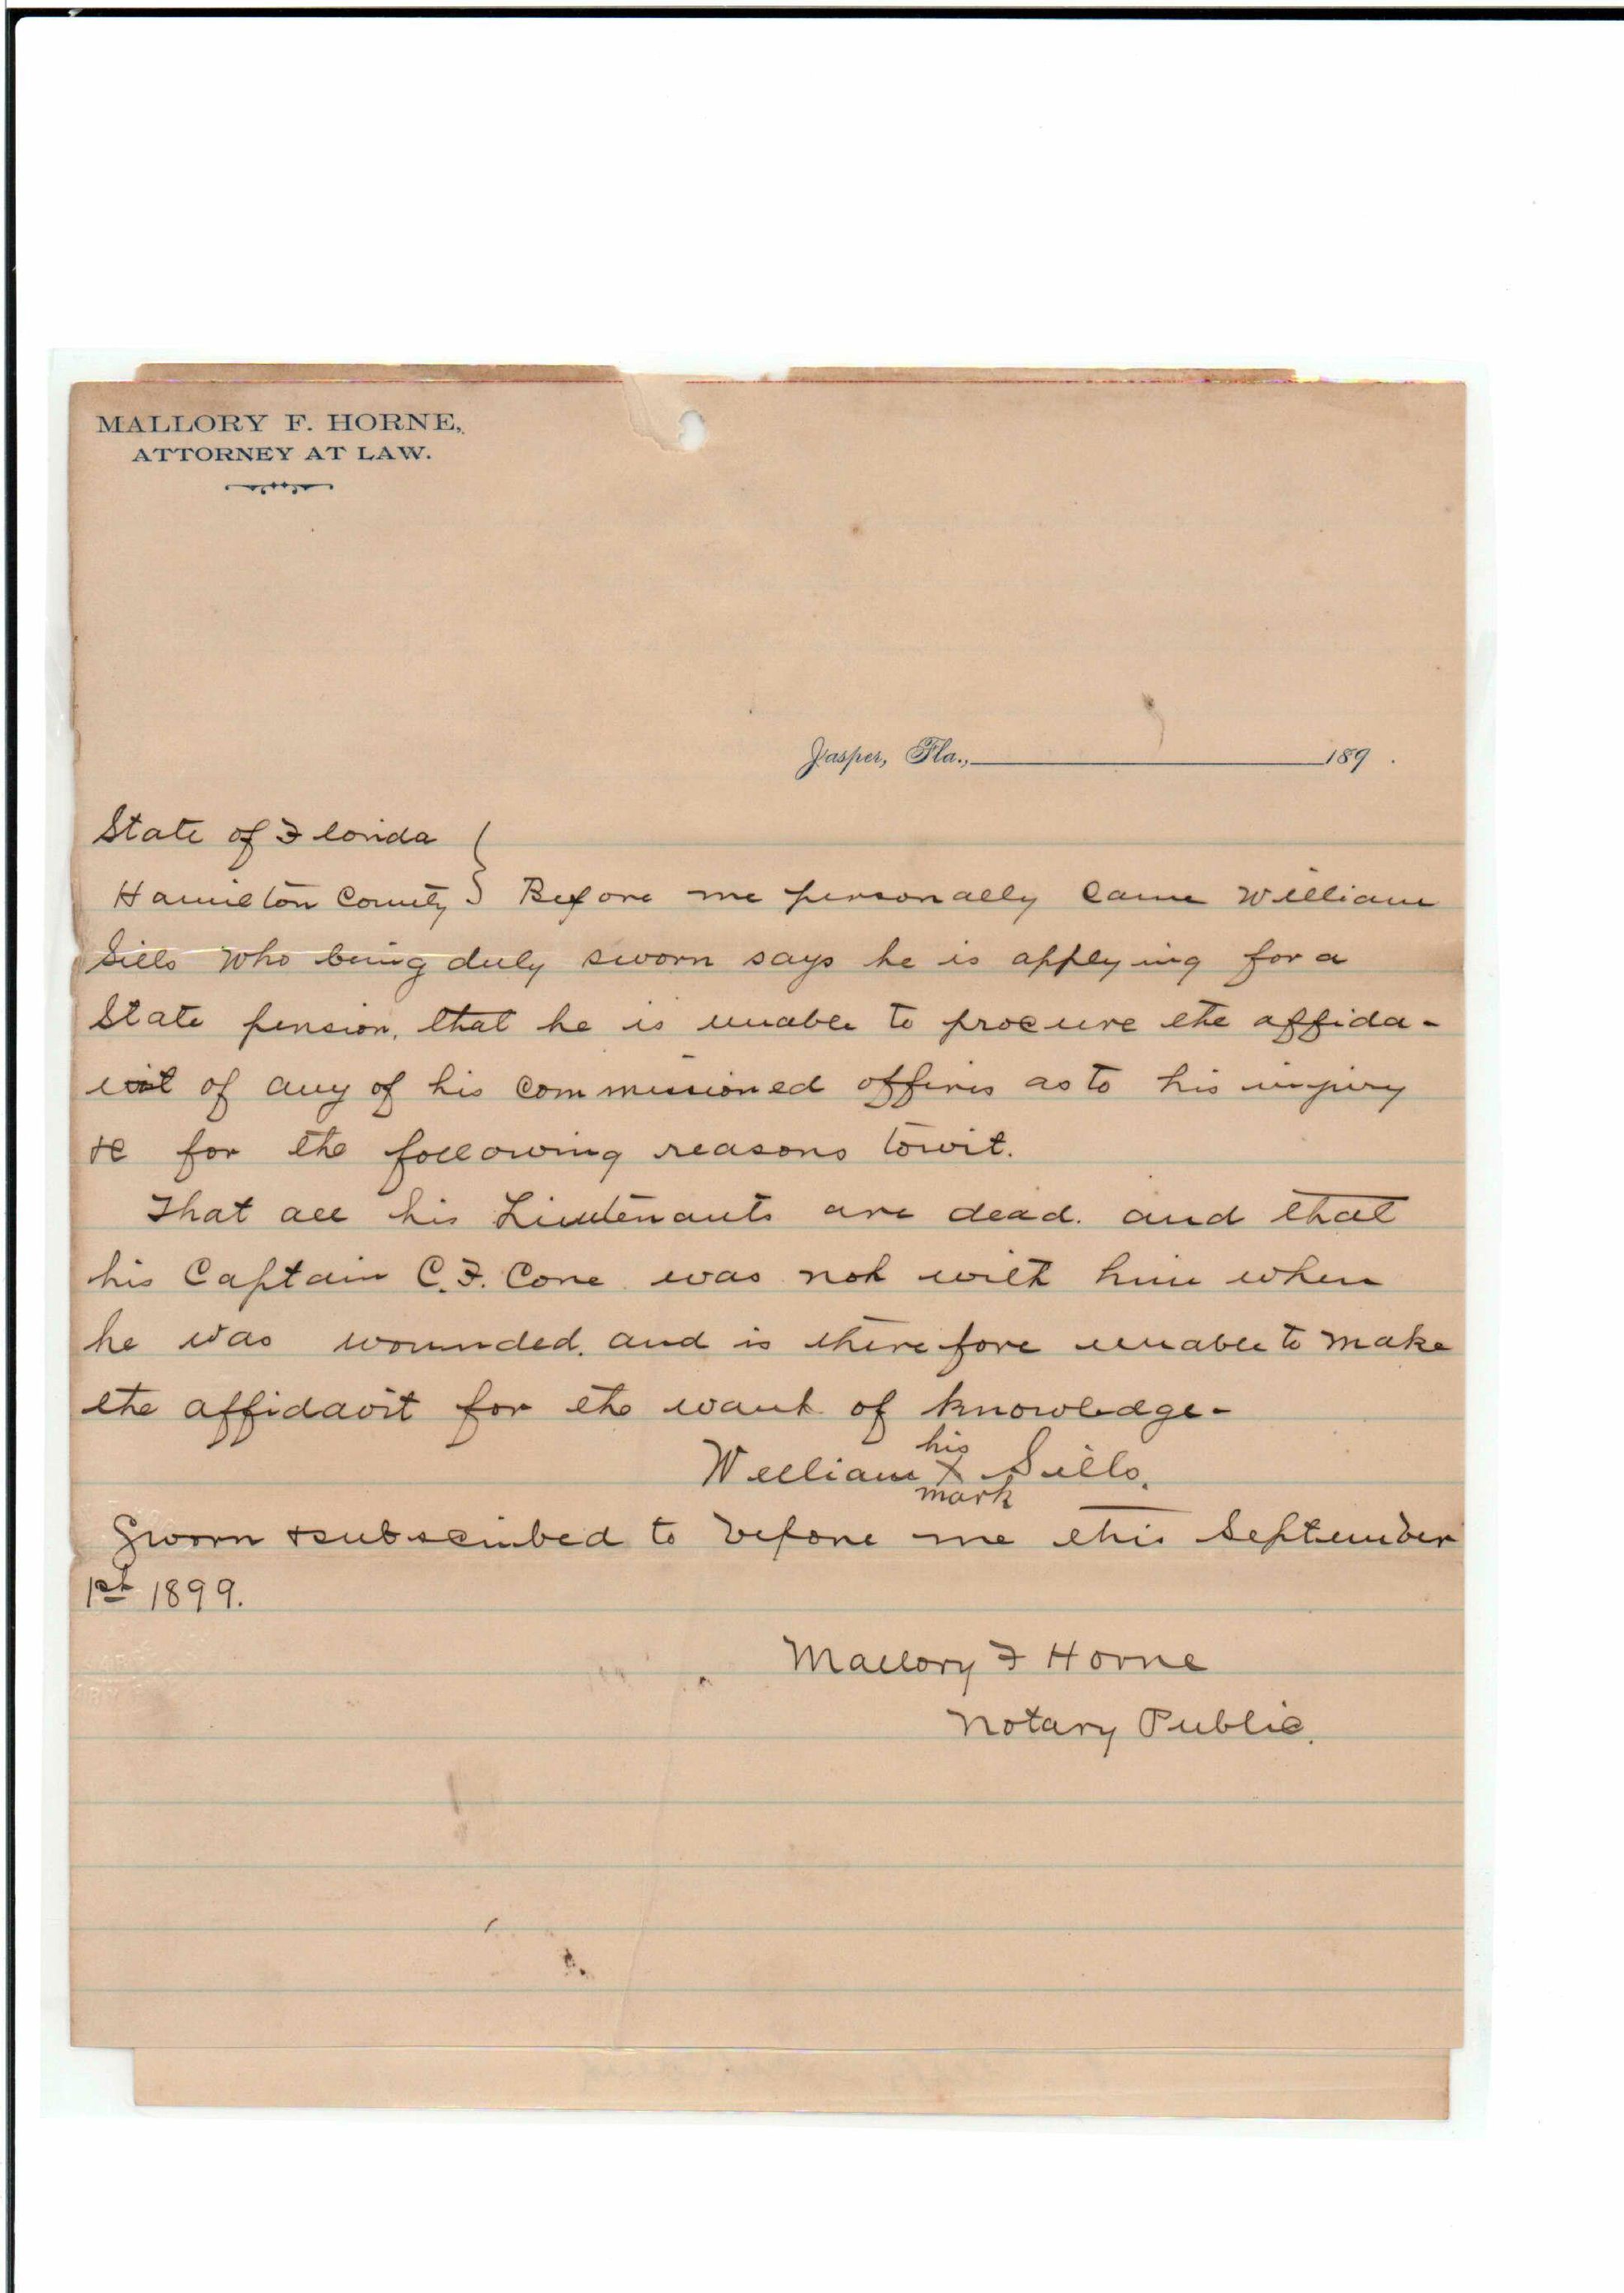 MALLORY F. HORNE,
ATTORNEY AT LAW.
Jasper, Fla., 189 .
State of Florida
Hamilton County } Before me personally came William
Sills who being duly sworn says he is applying for a
State pension, that he is unable to procure the affida-
vit of any of his commissioned officers as to his injury
&c for the following reasons towit.
That all his Lieutenants are dead. and that
his Captain C.F. Cone was not with him when
he was wounded, and is therefore unable to make
the affidavit for the want of knowledge-
his
William X Sills.
mark
Sworn & subscribed to before me this September
1st 1899.
Mallory F Horne
Notary Public.